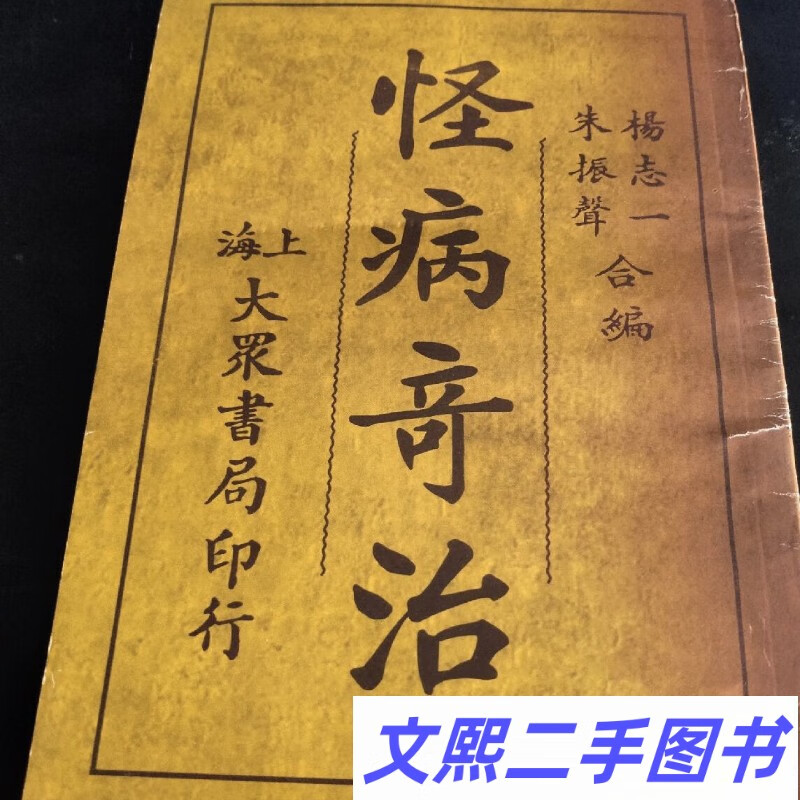 楊志一
朱振聲
合編
怪病竒治
上海
大眾書局印行
文熙二手图书